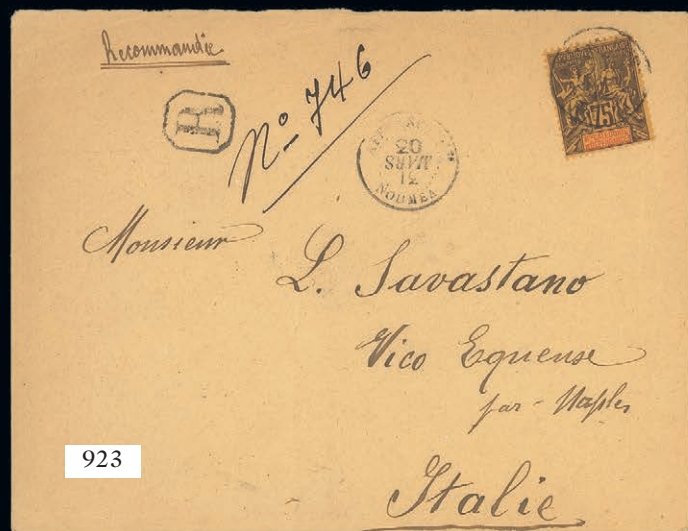 Recommandée
R
Nº 746
MARS
NOUMEA
75
Monsieur
L. Savastano
Vico Equense
par - Naples
Italie
923